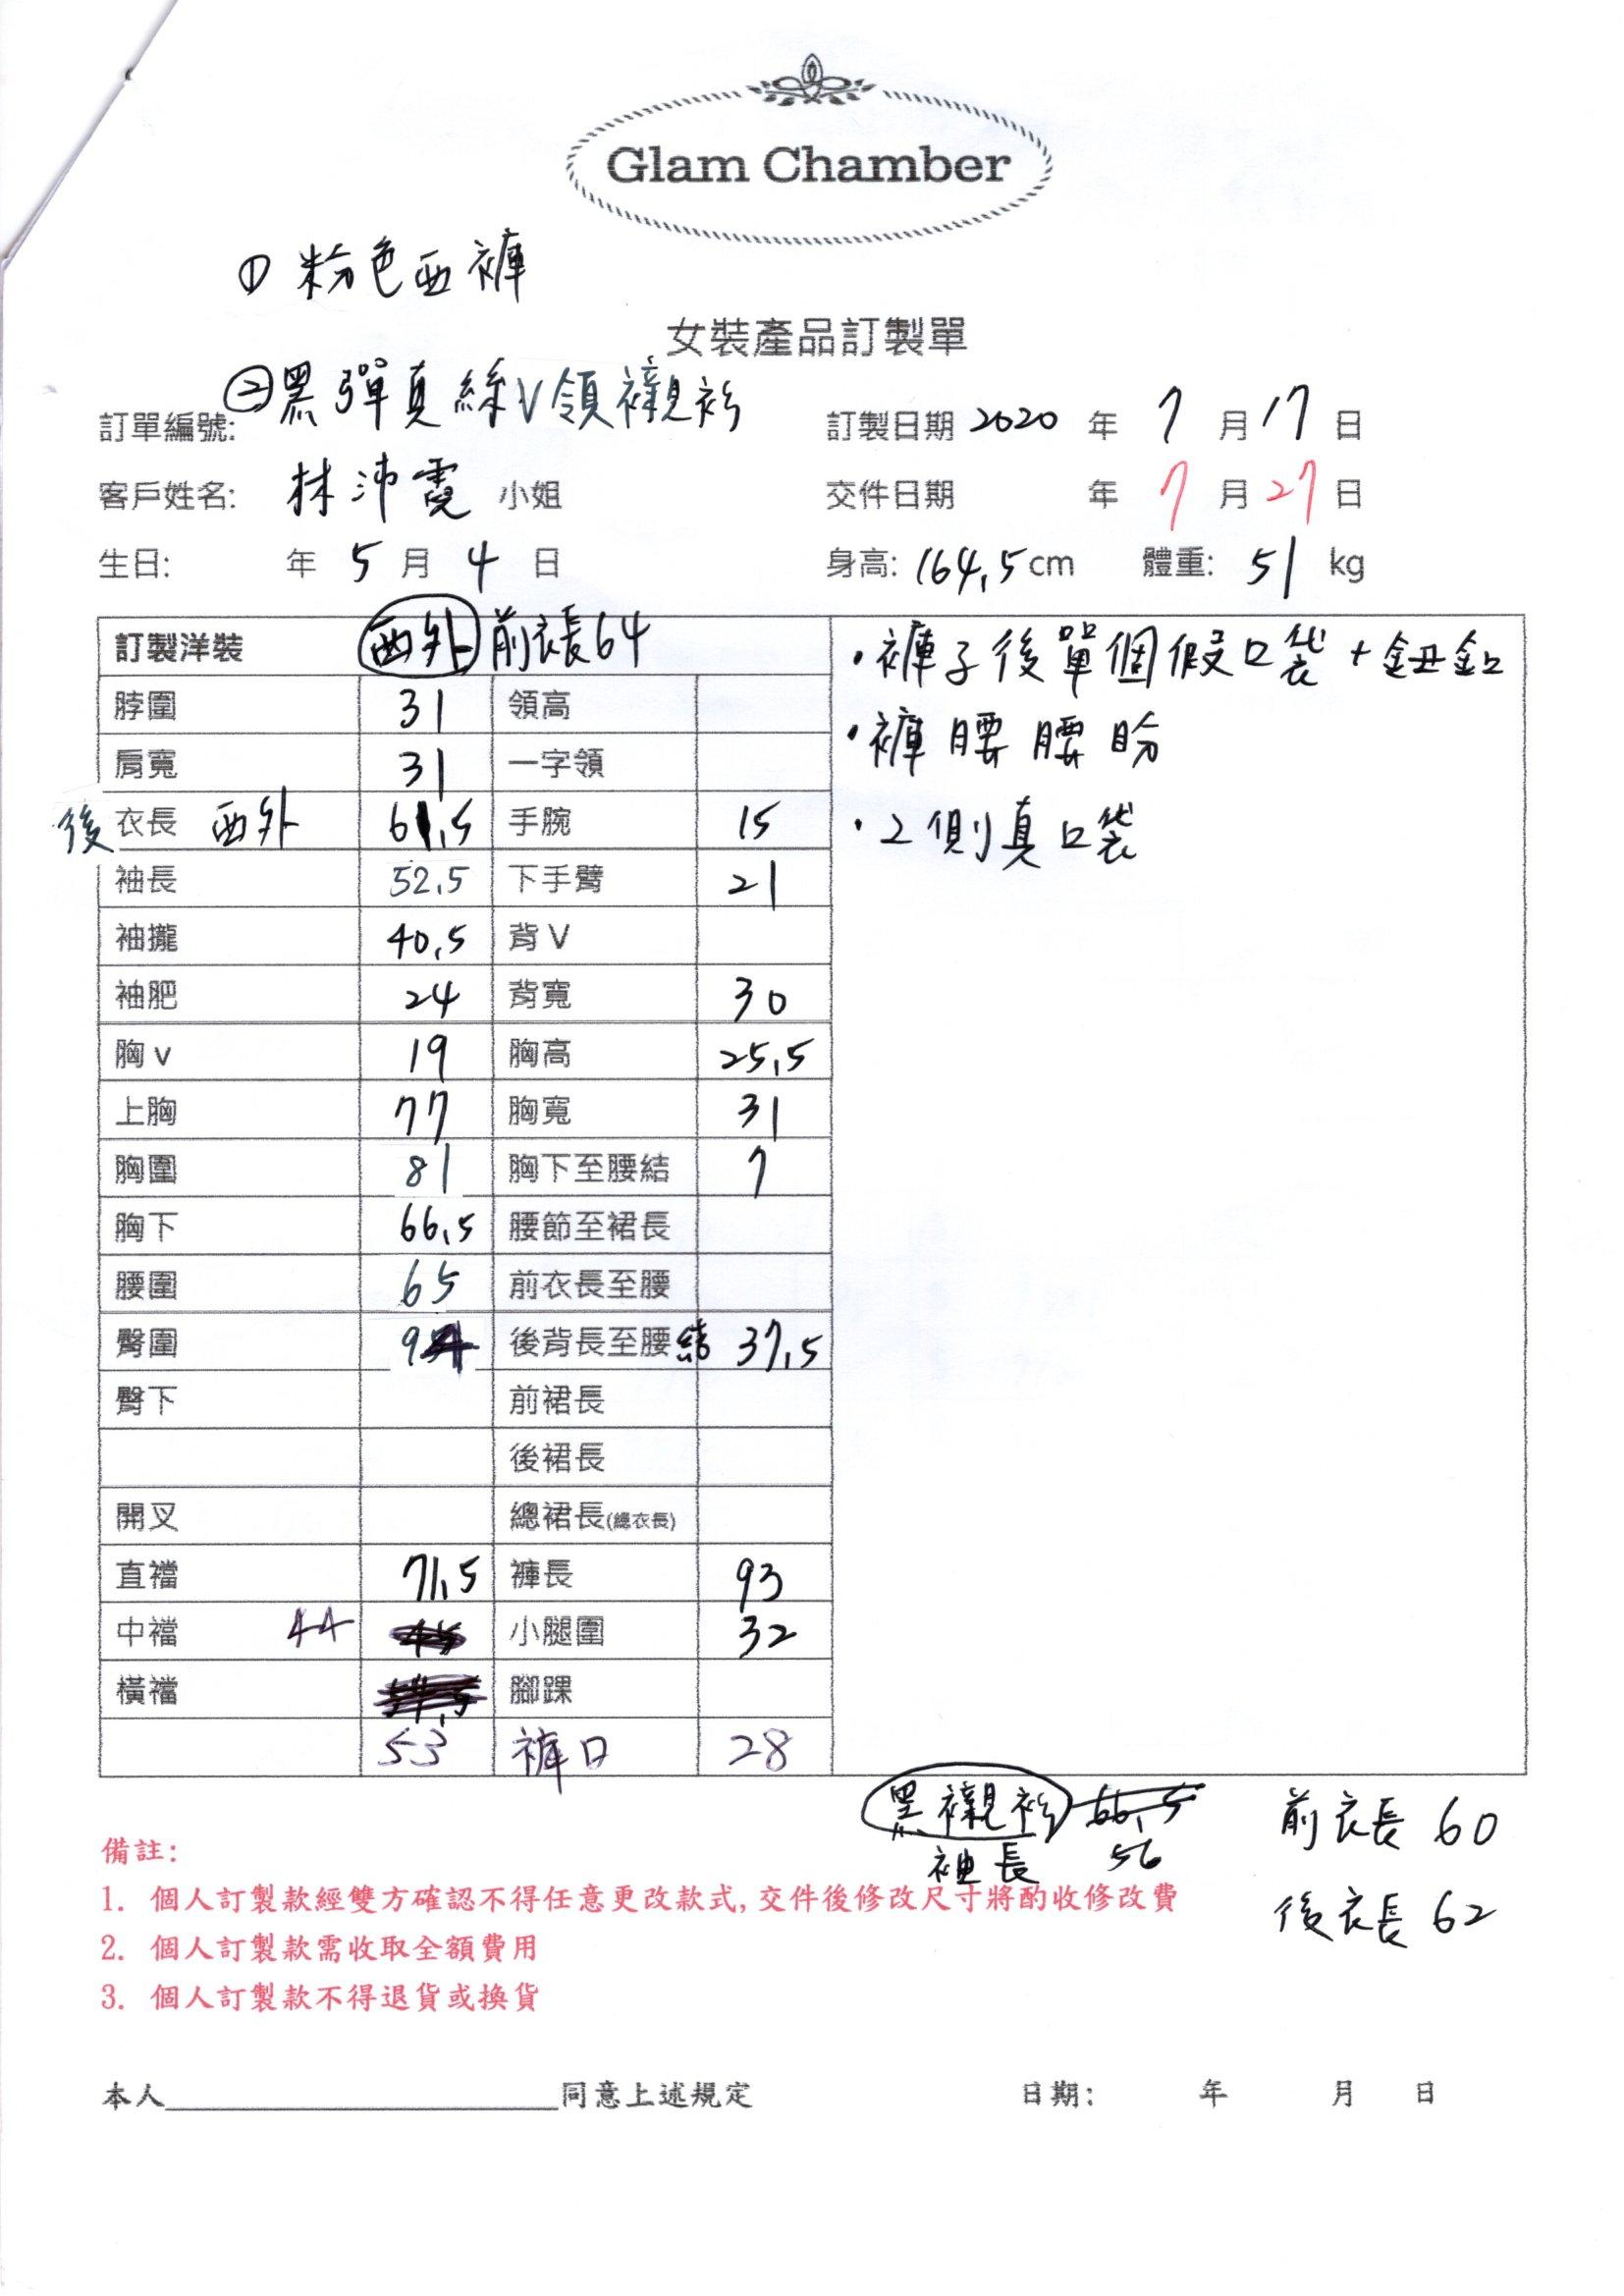 Glam Chamber
① 粉色西褲
女裝產品訂製單
② 黑彈真絲V領襯衫
訂單編號: 訂製日期 2020 年 7 月 17 日
客戶姓名: 林沛霓 小姐 交件日期 年 7 月 27 日
生日: 年 5 月 4 日 身高: 164.5 cm 體重: 51 kg
訂製洋裝 西外 前衣長64
脖圍 31 領高
肩寬 31 一字領
後 衣長 西外 61.5 手腕 15
袖長 52.5 下手臂 21
袖攏 40.5 背 V
袖肥 24 背寬 30
胸 v 19 胸高 25.5
上胸 77 胸寬 31
胸圍 81 胸下至腰結 7
胸下 66.5 腰節至裙長
腰圍 65 前衣長至腰
臀圍 後背長至腰 結 37.5
臀下 前裙長
後裙長
開叉 總裙長(總衣長)
直襠 71.5 褲長 93
中襠 44 小腿圍 32
橫襠 腳踝
53 褲口 28
・褲子後單個假口袋 + 鈕釦
・褲腰腰盼
・2側真口袋
黑襯衫 66.5 前衣長 60
袖長 56
後衣長 62
備註:
1. 個人訂製款經雙方確認不得任意更改款式, 交件後修改尺寸將酌收修改費
2. 個人訂製款需收取全額費用
3. 個人訂製款不得退貨或換貨
本人____________________同意上述規定 日期: 年 月 日